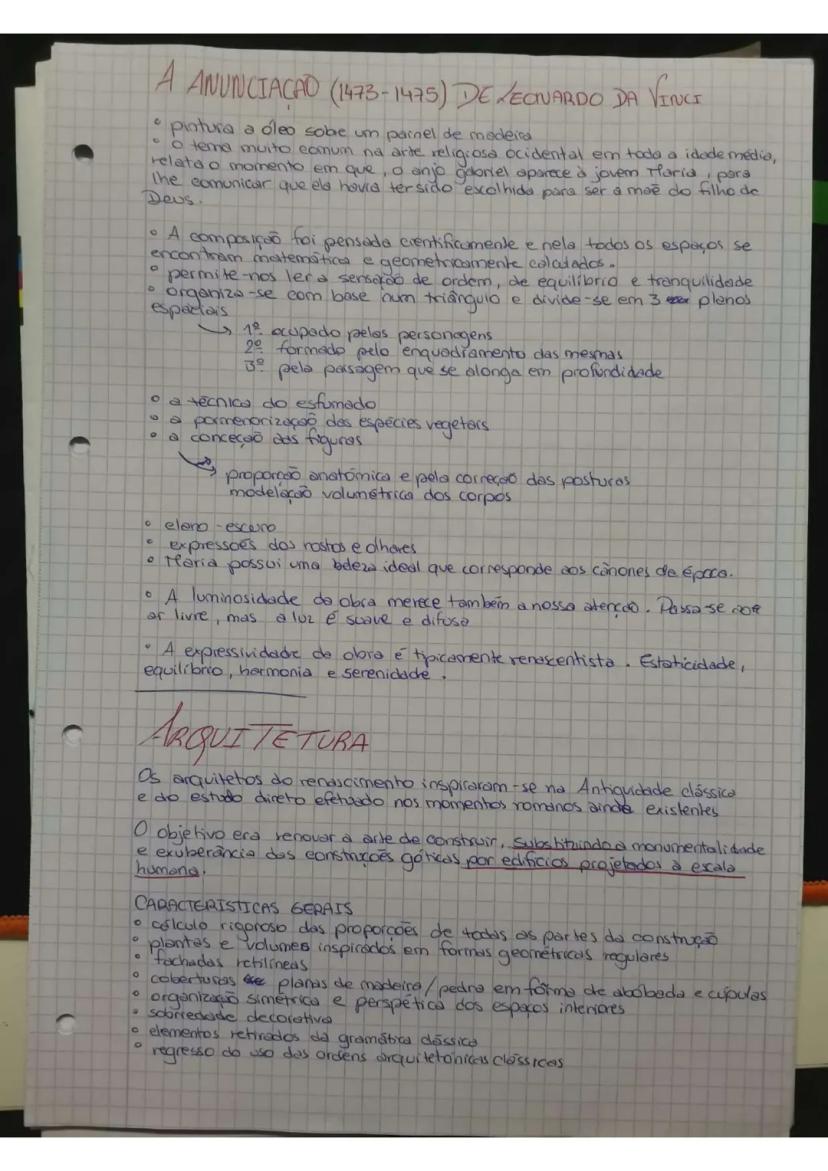 A ANUNCIAÇÃO (1473-1475) DE LEONARDO DA VINCI
• pintura a óleo sobe um painel de madeira
• o tema muito comum na arte religiosa ocidental em toda a idade média,
relata o momento em que, o anjo gabriel aparece à jovem Maria, para
lhe comunicar que ela havia ter sido escolhida para ser a maẽ do filho de
Deus.
• A composição foi pensada cientificamente e nela todos os espaços se
encontram matemática e geometricamente calculados.
• permite-nos ler a sensação de ordem, de equilíbrio e tranquilidade
• organiza-se com base num triângulo e divide-se em 3 planos
espaciais
↳ 1º ocupado pelas personagens
2º formado pelo enquadramento das mesmas
3º pela paisagem que se alonga em profundidade
• a técnica do esfumado
• a pormenorização das espécies vegetais
• a conceção das figuras
↳ proporção anatómica e pela correção das posturas
modelação volumétrica dos corpos
• claro-escuro
• expressões dos rostos e olhares
• Maria possui uma beleza ideal que corresponde aos cânones da época.
• A luminosidade da obra merece também a nossa atenção. Passa-se
ar livre, mas a luz é suave e difusa
• A expressividade da obra é tipicamente renascentista. Estaticidade,
equilíbrio, harmonia e serenidade.
ARQUITETURA
Os arquitetos do renascimento inspiraram-se na Antiguidade clássica
e do estudo direto efetuado nos momentos romanos ainda existentes
O objetivo era renovar a arte de construir, substituindo a monumentalidade
e exuberância das construções góticas por edifícios projetados à escala
humana.
CARACTERISTICAS GERAIS
• cálculo rigoroso das proporções de todas as partes da construção
• plantas e volumes inspirados em formas geométricas regulares
• fachadas retilíneas
• coberturas planas de madeira/pedra em forma de abóbada e cúpulas
• organização simétrica e perspética dos espaços interiores
• sobriedade decorativa
• elementos retirados da gramática clássica
• regresso do uso das ordens arquitetónicas clássicas